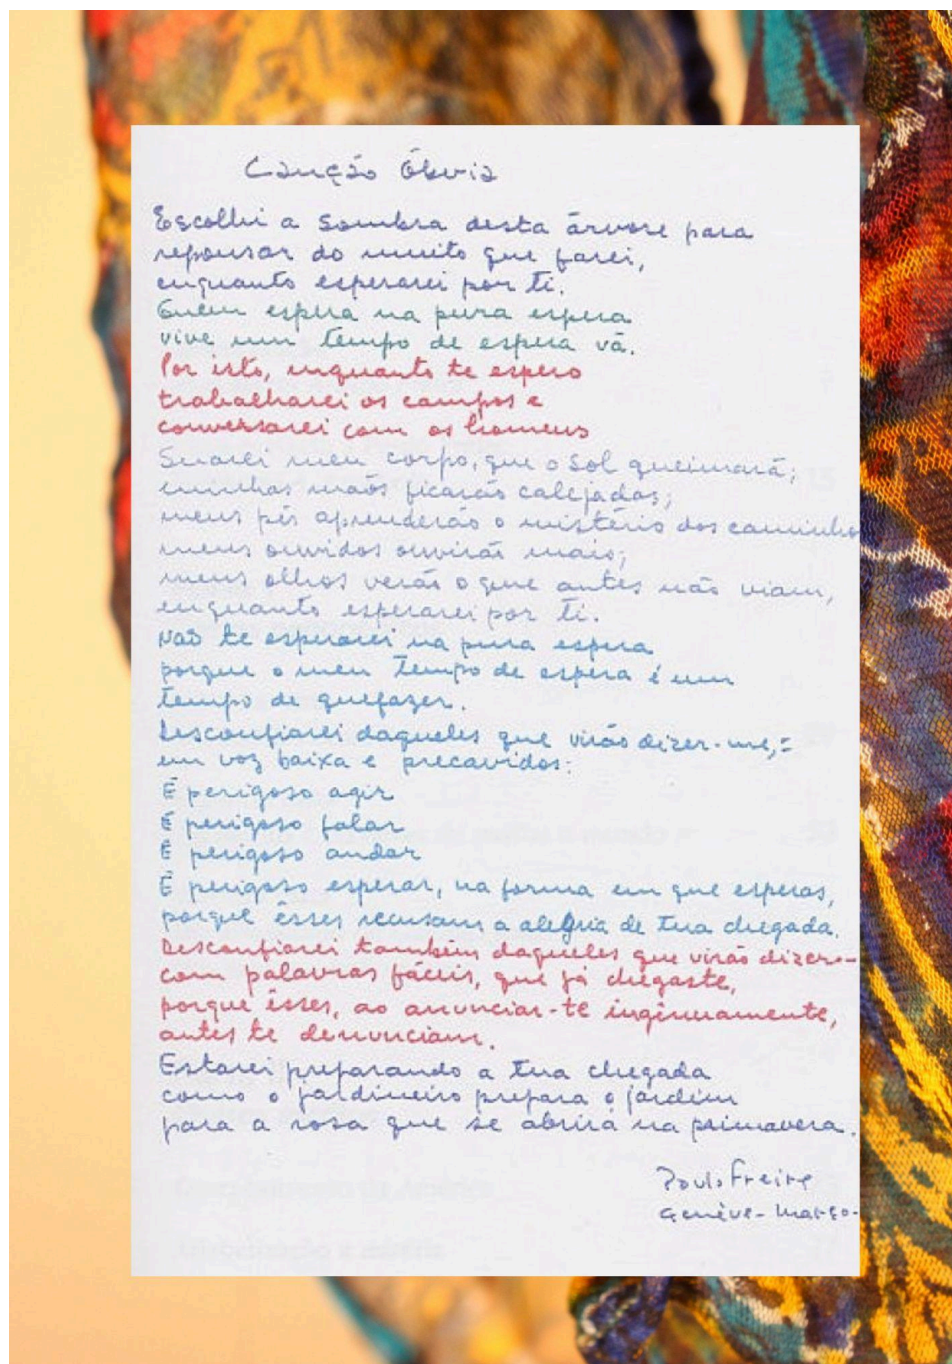 Canção Óbvia
Escolhi a sombra desta árvore para
repousar do muito que farei,
enquanto esperarei por ti.
Quem espera na pura espera
vive um tempo de espera vã.
Por isto, enquanto te espero
trabalharei os campos e
conversarei com os homens
Suarei meu corpo, que o sol queimará;
minhas mãos ficarão calejadas;
meus pés aprenderão o mistério dos caminho
meus ouvidos ouvirão mais;
meus olhos verão o que antes não viam,
enquanto esperarei por ti.
Não te esperarei na pura espera
porque o meu tempo de espera é um
tempo de quefazer.
Desconfiarei daqueles que virão dizer-me,:
em voz baixa e precavidos:
É perigoso agir
É perigoso falar
É perigoso andar
É perigoso esperar, na forma em que esperas,
porquê êsses recusam a alegria de tua chegada.
Desconfiarei também daqueles que virão dizer-
com palavras fáceis, que já chegaste,
porque êsses, ao anunciar-te ingênuamente,
antes te denunciam.
Estarei preparando a tua chegada
como o jardineiro prepara o jardim
para a rosa que se abrirá na primavera.
Paulo Freire
Genève - Março -